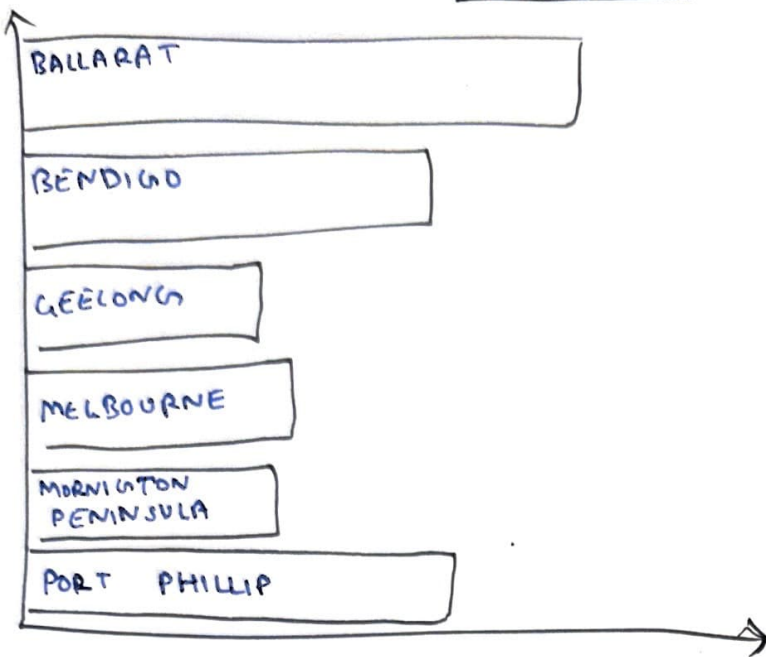 BALLARAT
BENDIGO
GEELONG
MELBOURNE
MORNIGTON
PENINSULA
PORT PHILLIP